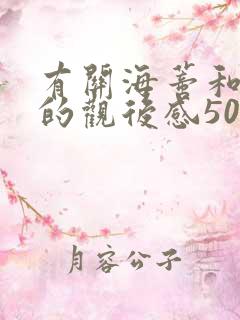 有關海蒂和
的觀後感50
月容公子